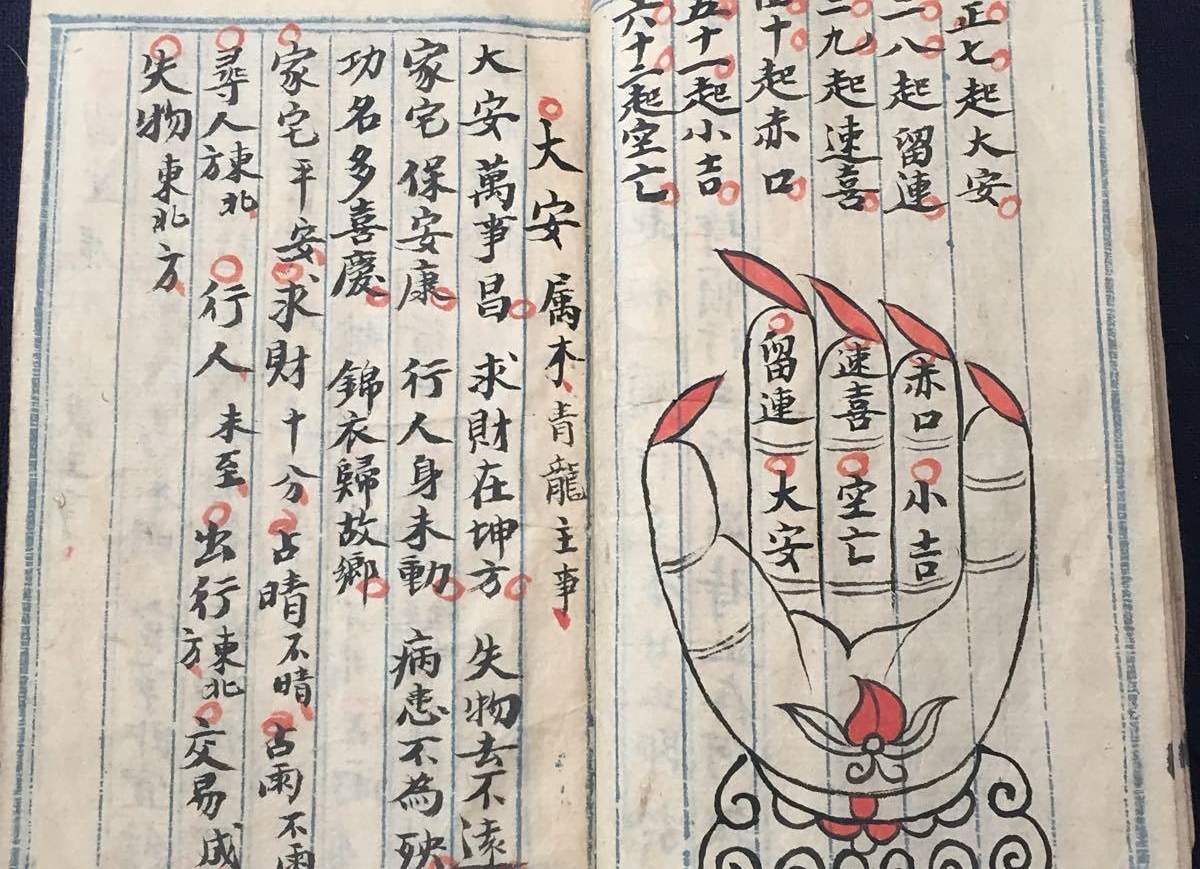 正七起大安
二八起留連
三九起速喜
四十起赤口
五十一起小吉
六十二起空亡
赤口
小吉
速喜
空亡
留連
大安
大安 属木 青龍主事
大安萬事昌 求財在坤方 失物去不遠
家宅保安康 行人身未動 病患不為殃
功名多喜慶 錦衣歸故鄉
家宅平安 求財十分 占晴不晴 占雨不雨
尋人東北方 行人未至 出行東北方 交易成
失物東北方